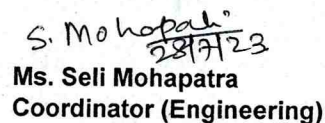 S. Mohopati
28/7/23
Ms. Seli Mohapatra
Coordinator (Engineering)